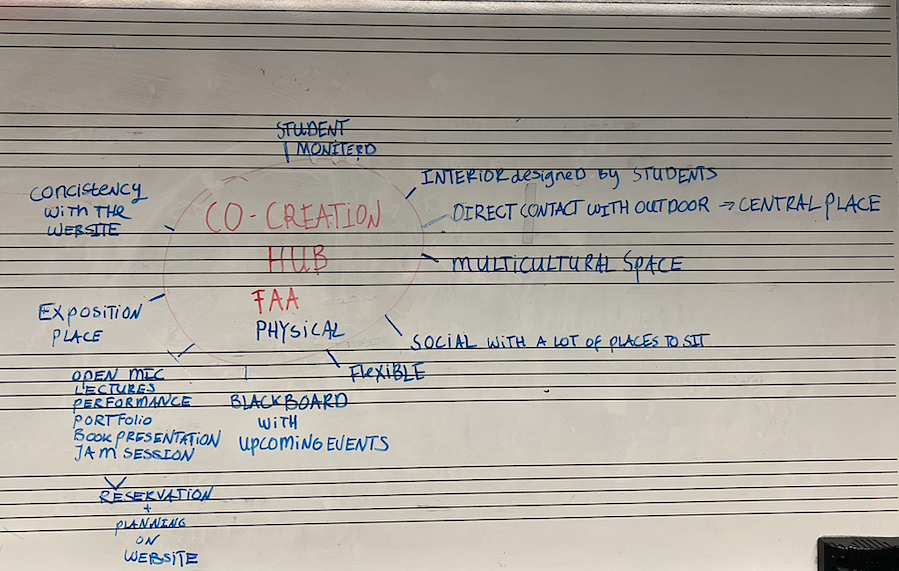 STUDENT
MONITERD
INTERIOR designed By STUDENTS
DIRECT CONTACT WITH OUTDOOR → CENTRAL PLACE
MULTICULTURAL SPACE
SOCIAL WITH A LOT OF PLACES TO SIT
FLEXIBLE
BLACKBOARD
WITH
UPCOMING EVENTS
CONCISTENCY
WITH THE
WEBSITE
CO-CREATION
HUB
FAA
PHYSICAL
EXPOSITION
PLACE
OPEN MIC
LECTURES
PERFORMANCE
PORTFOLIO
BOOK PRESENTATION
JAM SESSION
RESERVATION
+
PLANNING
ON
WEBSITE